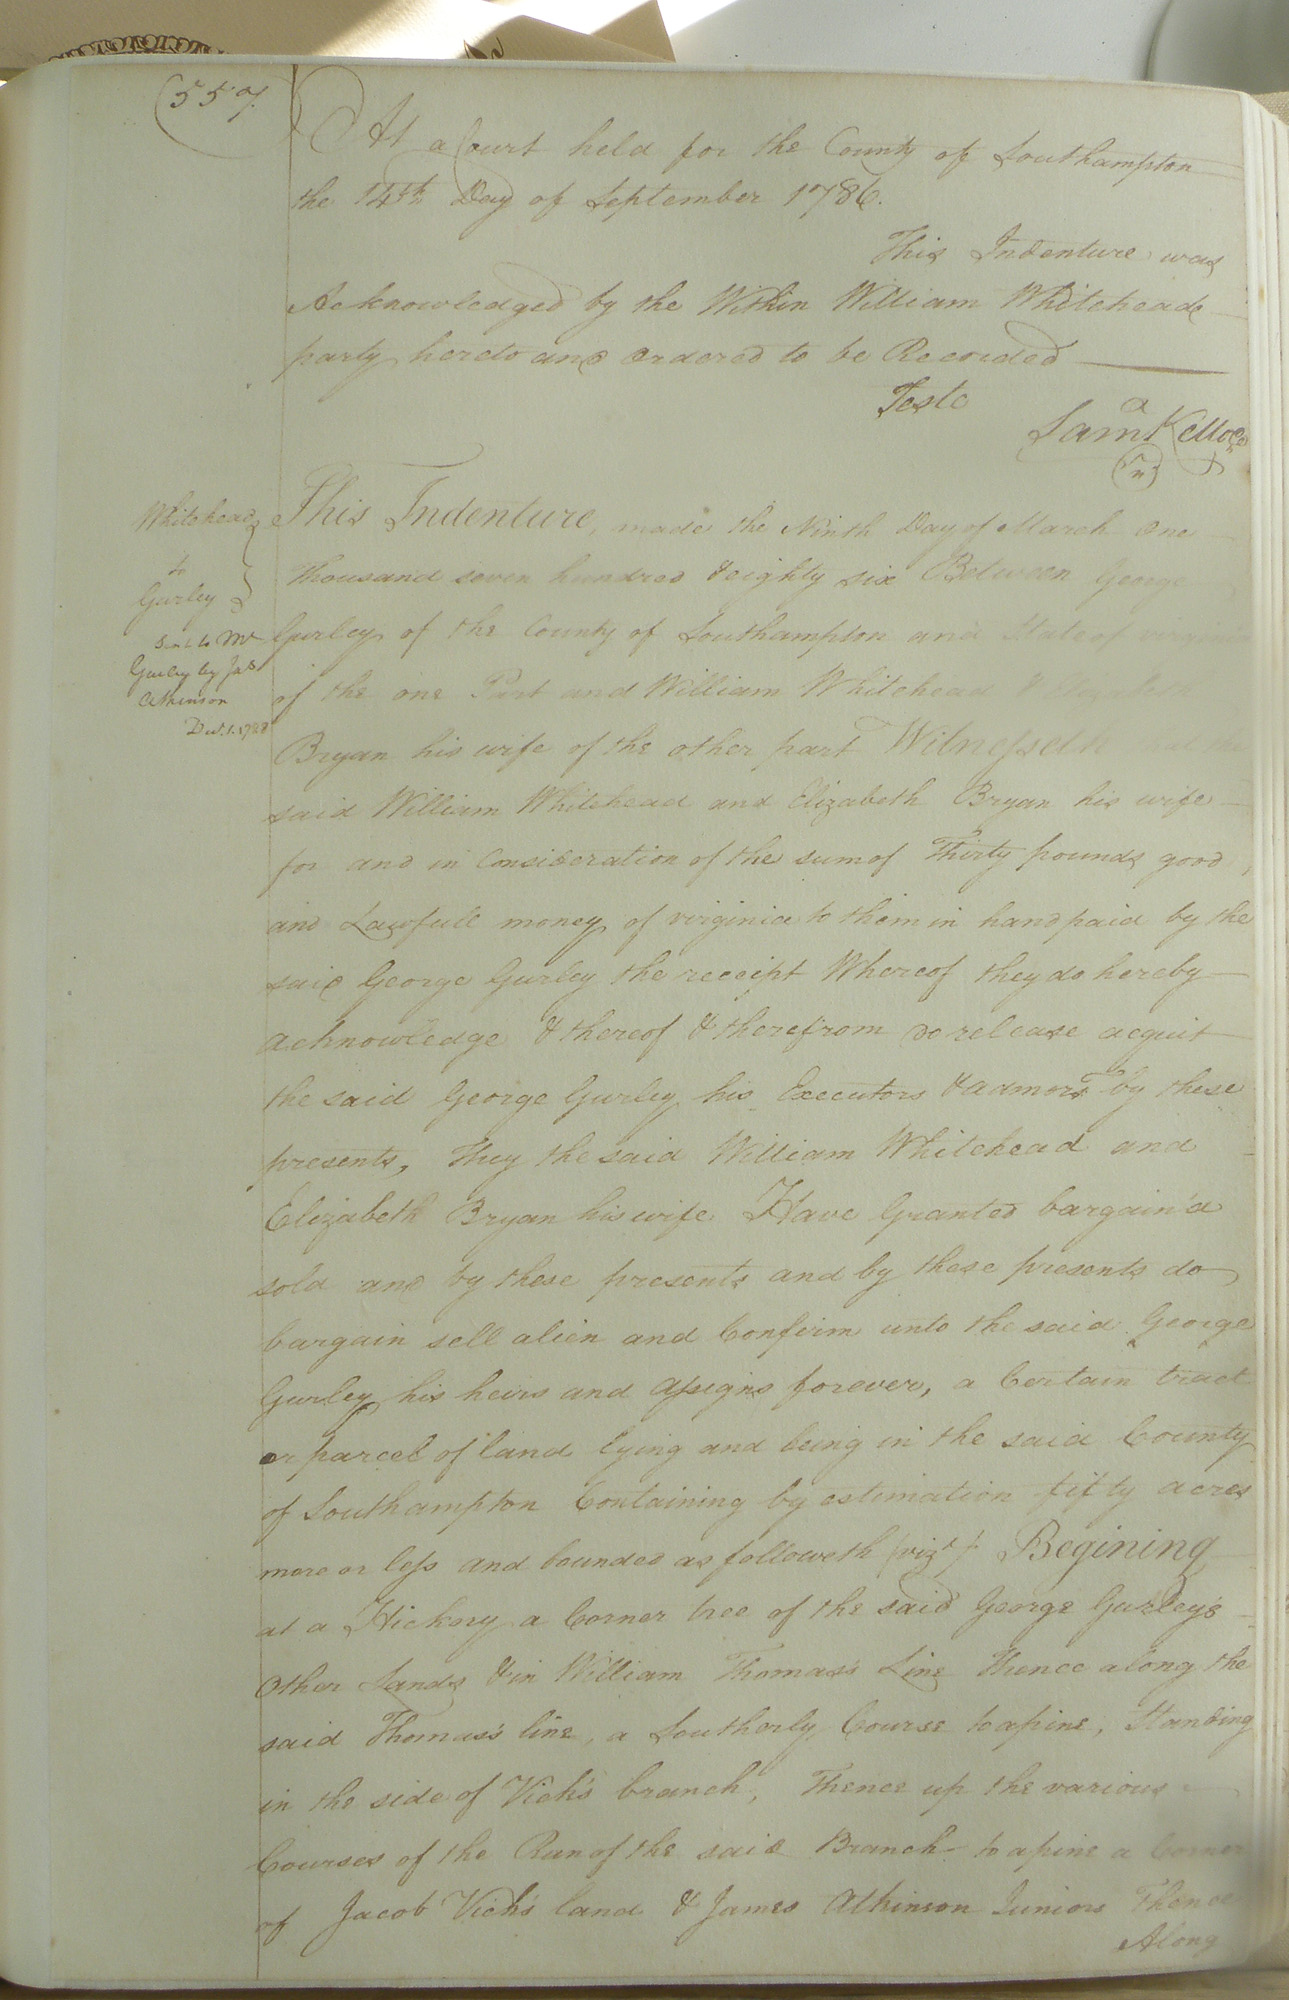 557.
At a Court held for the County of Southampton
the 14th Day of September 1786.
This Indenture was
Acknowledged by the Within William Whitehead
party hereto and ordered to be Recorded
Teste
Saml Kello
Whitehead
to
Gurley
Sent to Mr
Gurley by Jas
Atkinson
Decr. 1. 1788
This Indenture, made the Ninth Day of March One
thousand seven hundred & eighty six Between George
Gurley of the County of Southampton and State of virginia
of the one Part and William Whitehead &
Bryan his wife of the other part Witnesseth
said William Whitehead and Elizabeth Bryan his wife
for and in Consideration of the sum of Thirty pounds good
and Lawfull money of virginia to them in hand paid by the
said George Gurley the receipt Whereof they do hereby
acknowledge & thereof & therefrom do release acquit
the said George Gurley his Executors & admors by these
presents, They the said William Whitehead and
Elizabeth Bryan his wife Have Granted bargain'd
sold and by these presents and by these presents do
bargain sell alien and Confirm unto the said George
Gurley his heirs and assigns forever, a Certain tract
or parcel of land lying and being in the said County
of Southampton Containing by estimation fifty acres
more or less and bounded as followeth (vizt) Begining
at a Hickory a Corner tree of the said George Gurley's
Other Lands & in William Thomas's Line Thence along the
said Thomas's line, a Southerly Course to a pine, Standing
in the side of Vick's branch, Thence up the various
Courses of the Run of the said Branch to a pine a Corner
of Jacob Vick's land & James Atkinson Juniors Thence
Along